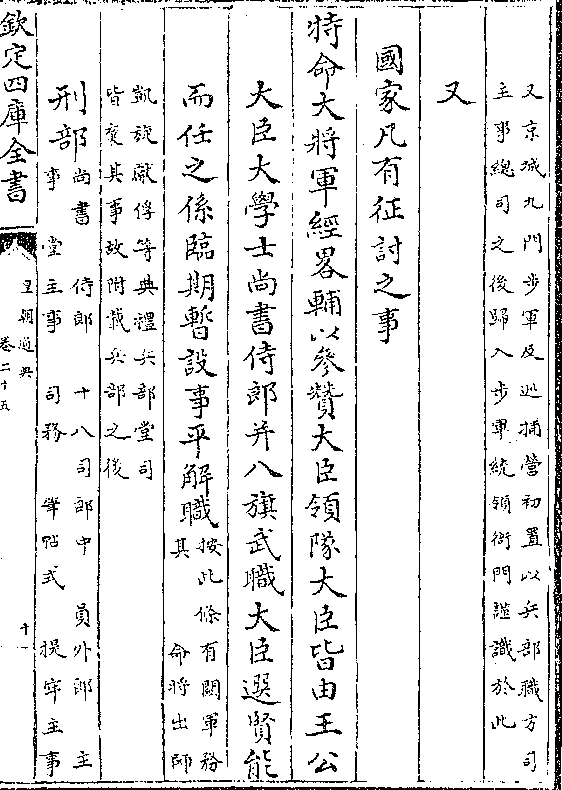 又京城九門步軍及巡捕營初置以兵部職方司
主事總司之後歸入步軍統領衙門謹識於此
又
國家凡有征討之事
特命大將軍經畧輔以參贊大臣領隊大臣皆由王公
大臣大學士尚書侍郎并八旗武職大臣選賢能
而任之係臨期暫設事平解職按此條有關軍務
其命將出師
凱旋獻俘等典禮兵部堂司
皆襄其事故附載兵部之後
刑部尚書 侍郎 十八司郎中 員外郎 主
事 堂主事 司務 筆帖式 提牢主事
欽定四庫全書
皇朝通典
卷二十五
十一